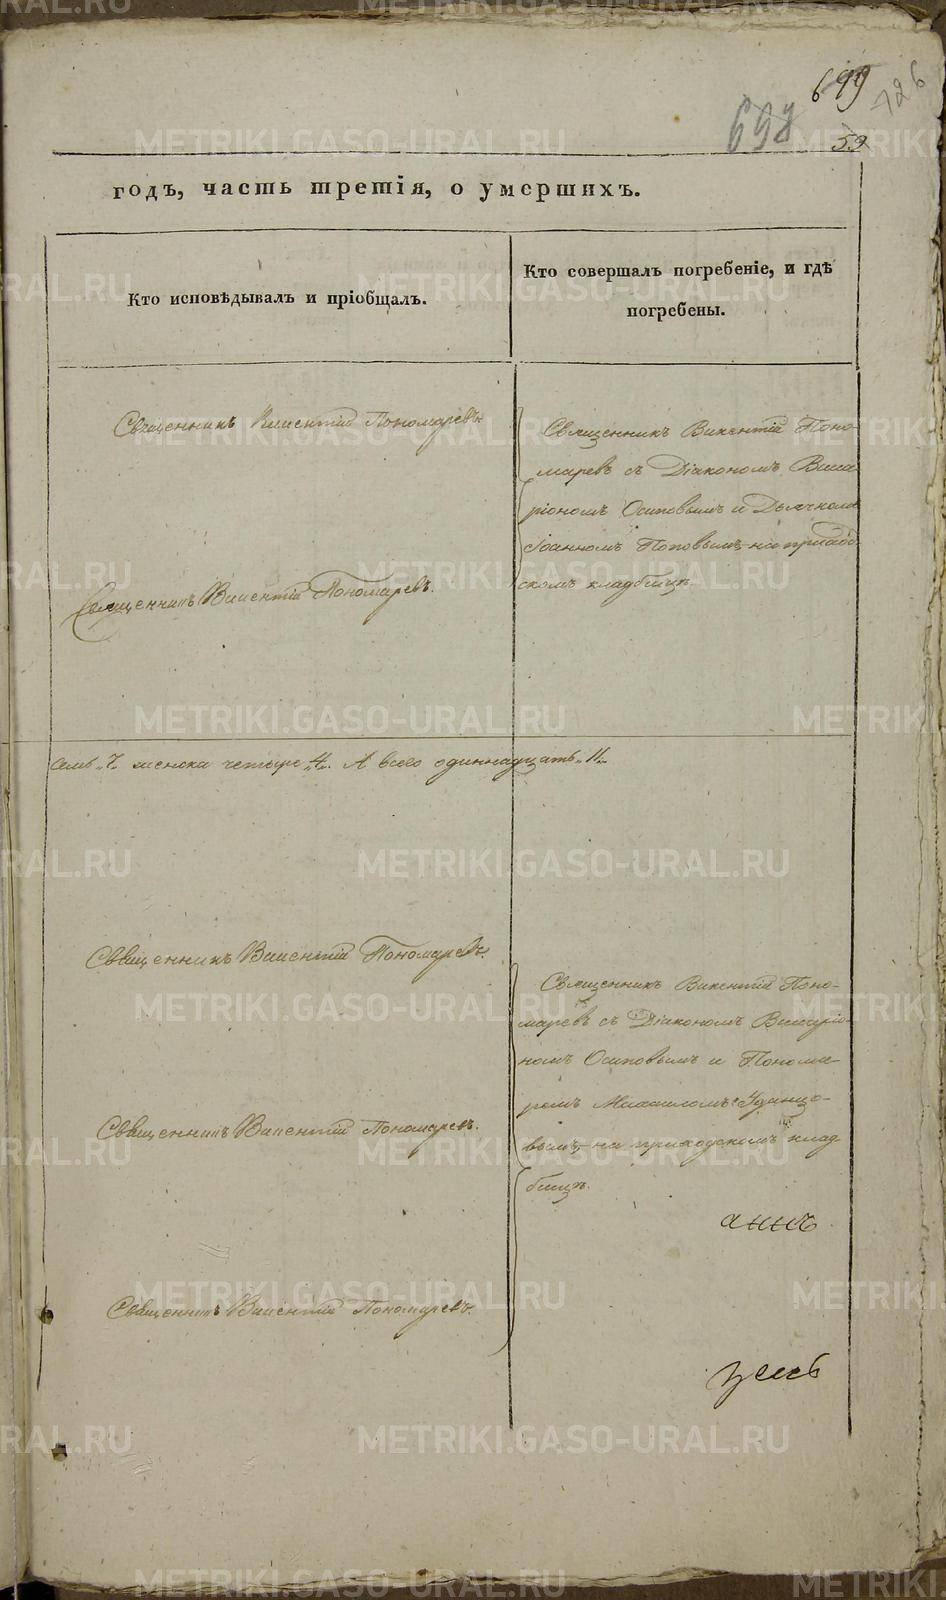 699
726
698
59
годъ, часть третія, о умершихъ.
Кто исповѣдывалъ и пріобщалъ.
Кто совершалъ погребеніе, и гдѣ
погребены.
Священникъ Викентій Пономаревъ.
Священникъ Викентій Поно-
маревъ съ Діакономъ Висса
ріономъ Осиповымъ и Дьячкомъ
Іоанномъ Поповымъ на приход
скомъ кладбищѣ.
Священникъ Викентій Пономаревъ.
семь „7„ женска четыре „4„. А всего одиннадцать „11„
Священникъ Викентій Пономаревъ.
Священникъ Викентій Поно-
маревъ съ Діакономъ Виссаріо-
номъ Осиповымъ и Понома-
ремъ Михаиломъ Удинцо-
вымъ на приходскомъ клад
бищѣ.
Священникъ Викентій Пономаревъ.
Священникъ Викентій Пономаревъ.
METRIKI.GASO-URAL.RU